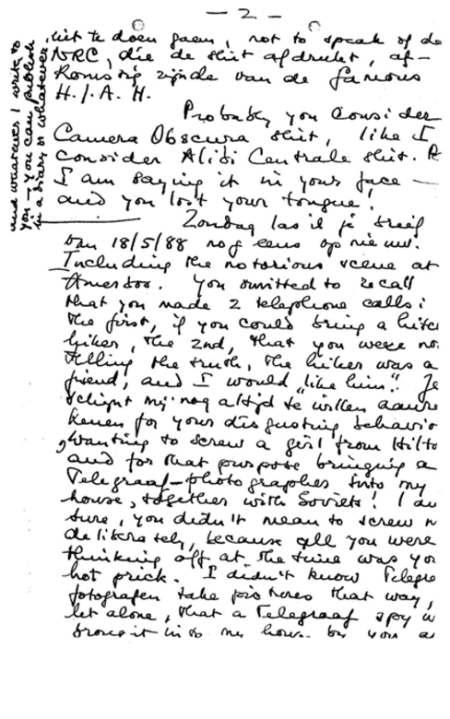 — 2 —
uit te doen gaan, not to speak of de
NRC, die de shit afdrukt, af-
komstig zijnde van de famous
H.J.A.H.
Probably you consider
Camera Obscura shit, like I
consider Alibi Centrale shit.
I am saying it in your face —
and you lost your tongue!
Zondag las ik je
van 18/5/88 nog eens op nieuw.
Including the notorious scene at
Amerbos. You omitted to recall
that you made 2 telephone calls:
the first, if you could bring a hitch
hiker, the 2nd, that you were no
telling the truth, the hiker was a
friend, and I would "like him". Je
schijnt mij nog altijd te willen aanre
kenen for your disgusting behavio
wanting to screw a girl from Hilto
and for that purpose bringing a
Telegraaf-photographer into my
house, together with Soviets! I am
sure, you didn't mean to screw
deliberately, because all you were
thinking off at the time was you
hot prick. I didn't know Telegra
fotografen take pictures that way,
let alone, that a Telegraaf spy w
brought into my house by you a
and whatever I write to
you — you can publish
in a diary or whatever